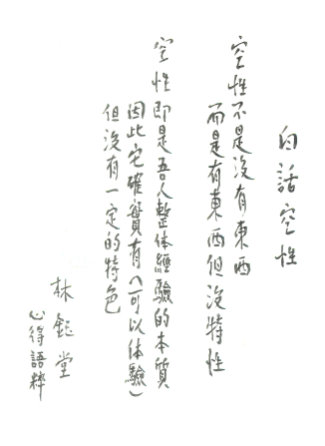 白話空性
空性不是沒有東西
而是有東西但沒特性
空性即是吾人整体經驗的本質
因此它確實有(可以体驗)
但沒有一定的特色
林鈺堂
心得語粹